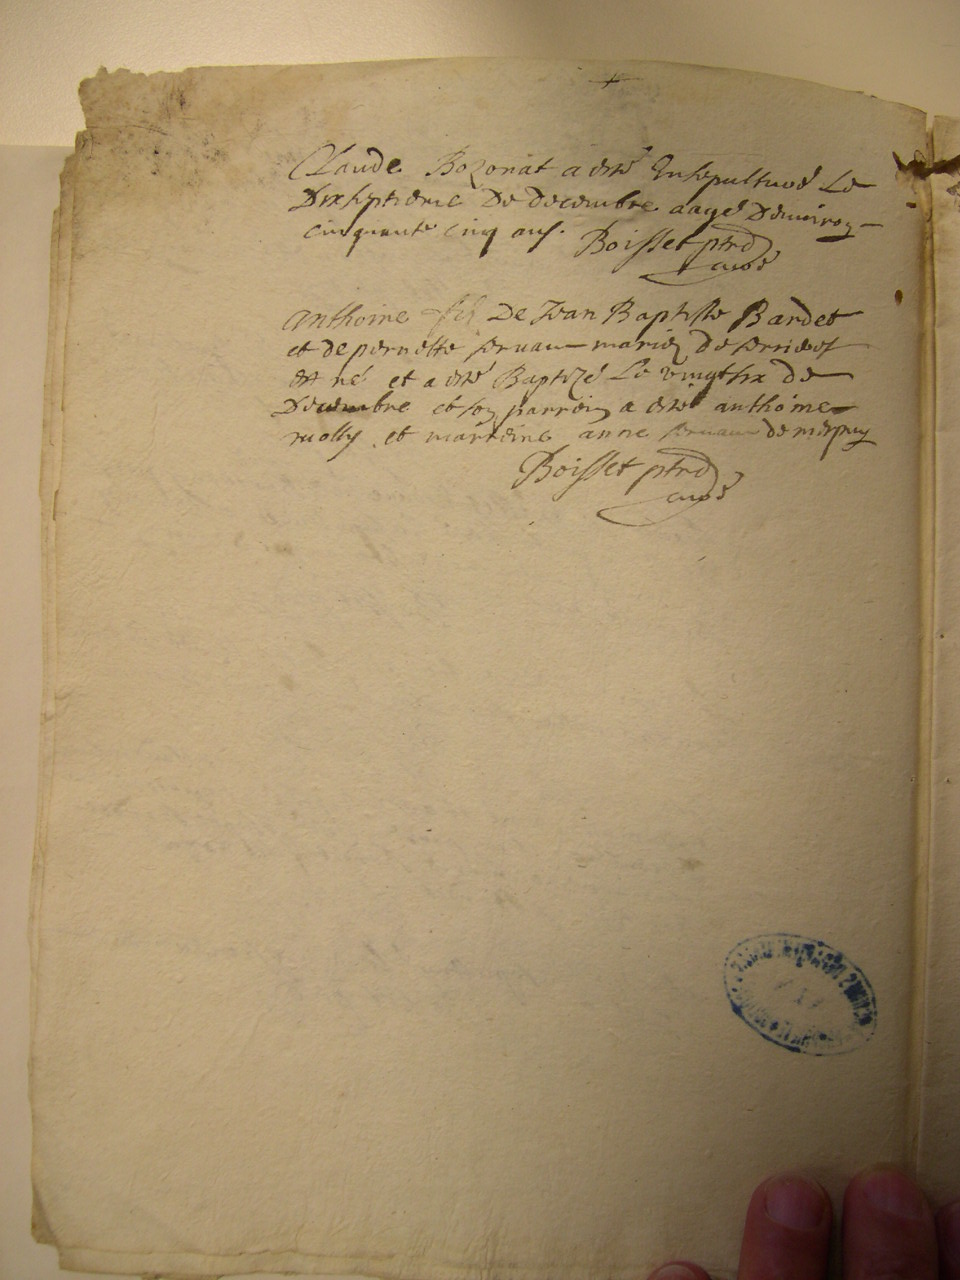 Claude Bozonat a esté Ensepulturé Le
Dixseptieme De decembre aagé Denviron
cinquante cinq ans. Boisset ptre
curé
anthoine fils De Jean Baptiste Bardet
et de pernette mariez de
est né et a esté Baptizé Le vingtsix de
Decembre et son parrein a esté anthoine
et marreine anne
Boisset ptre
curé